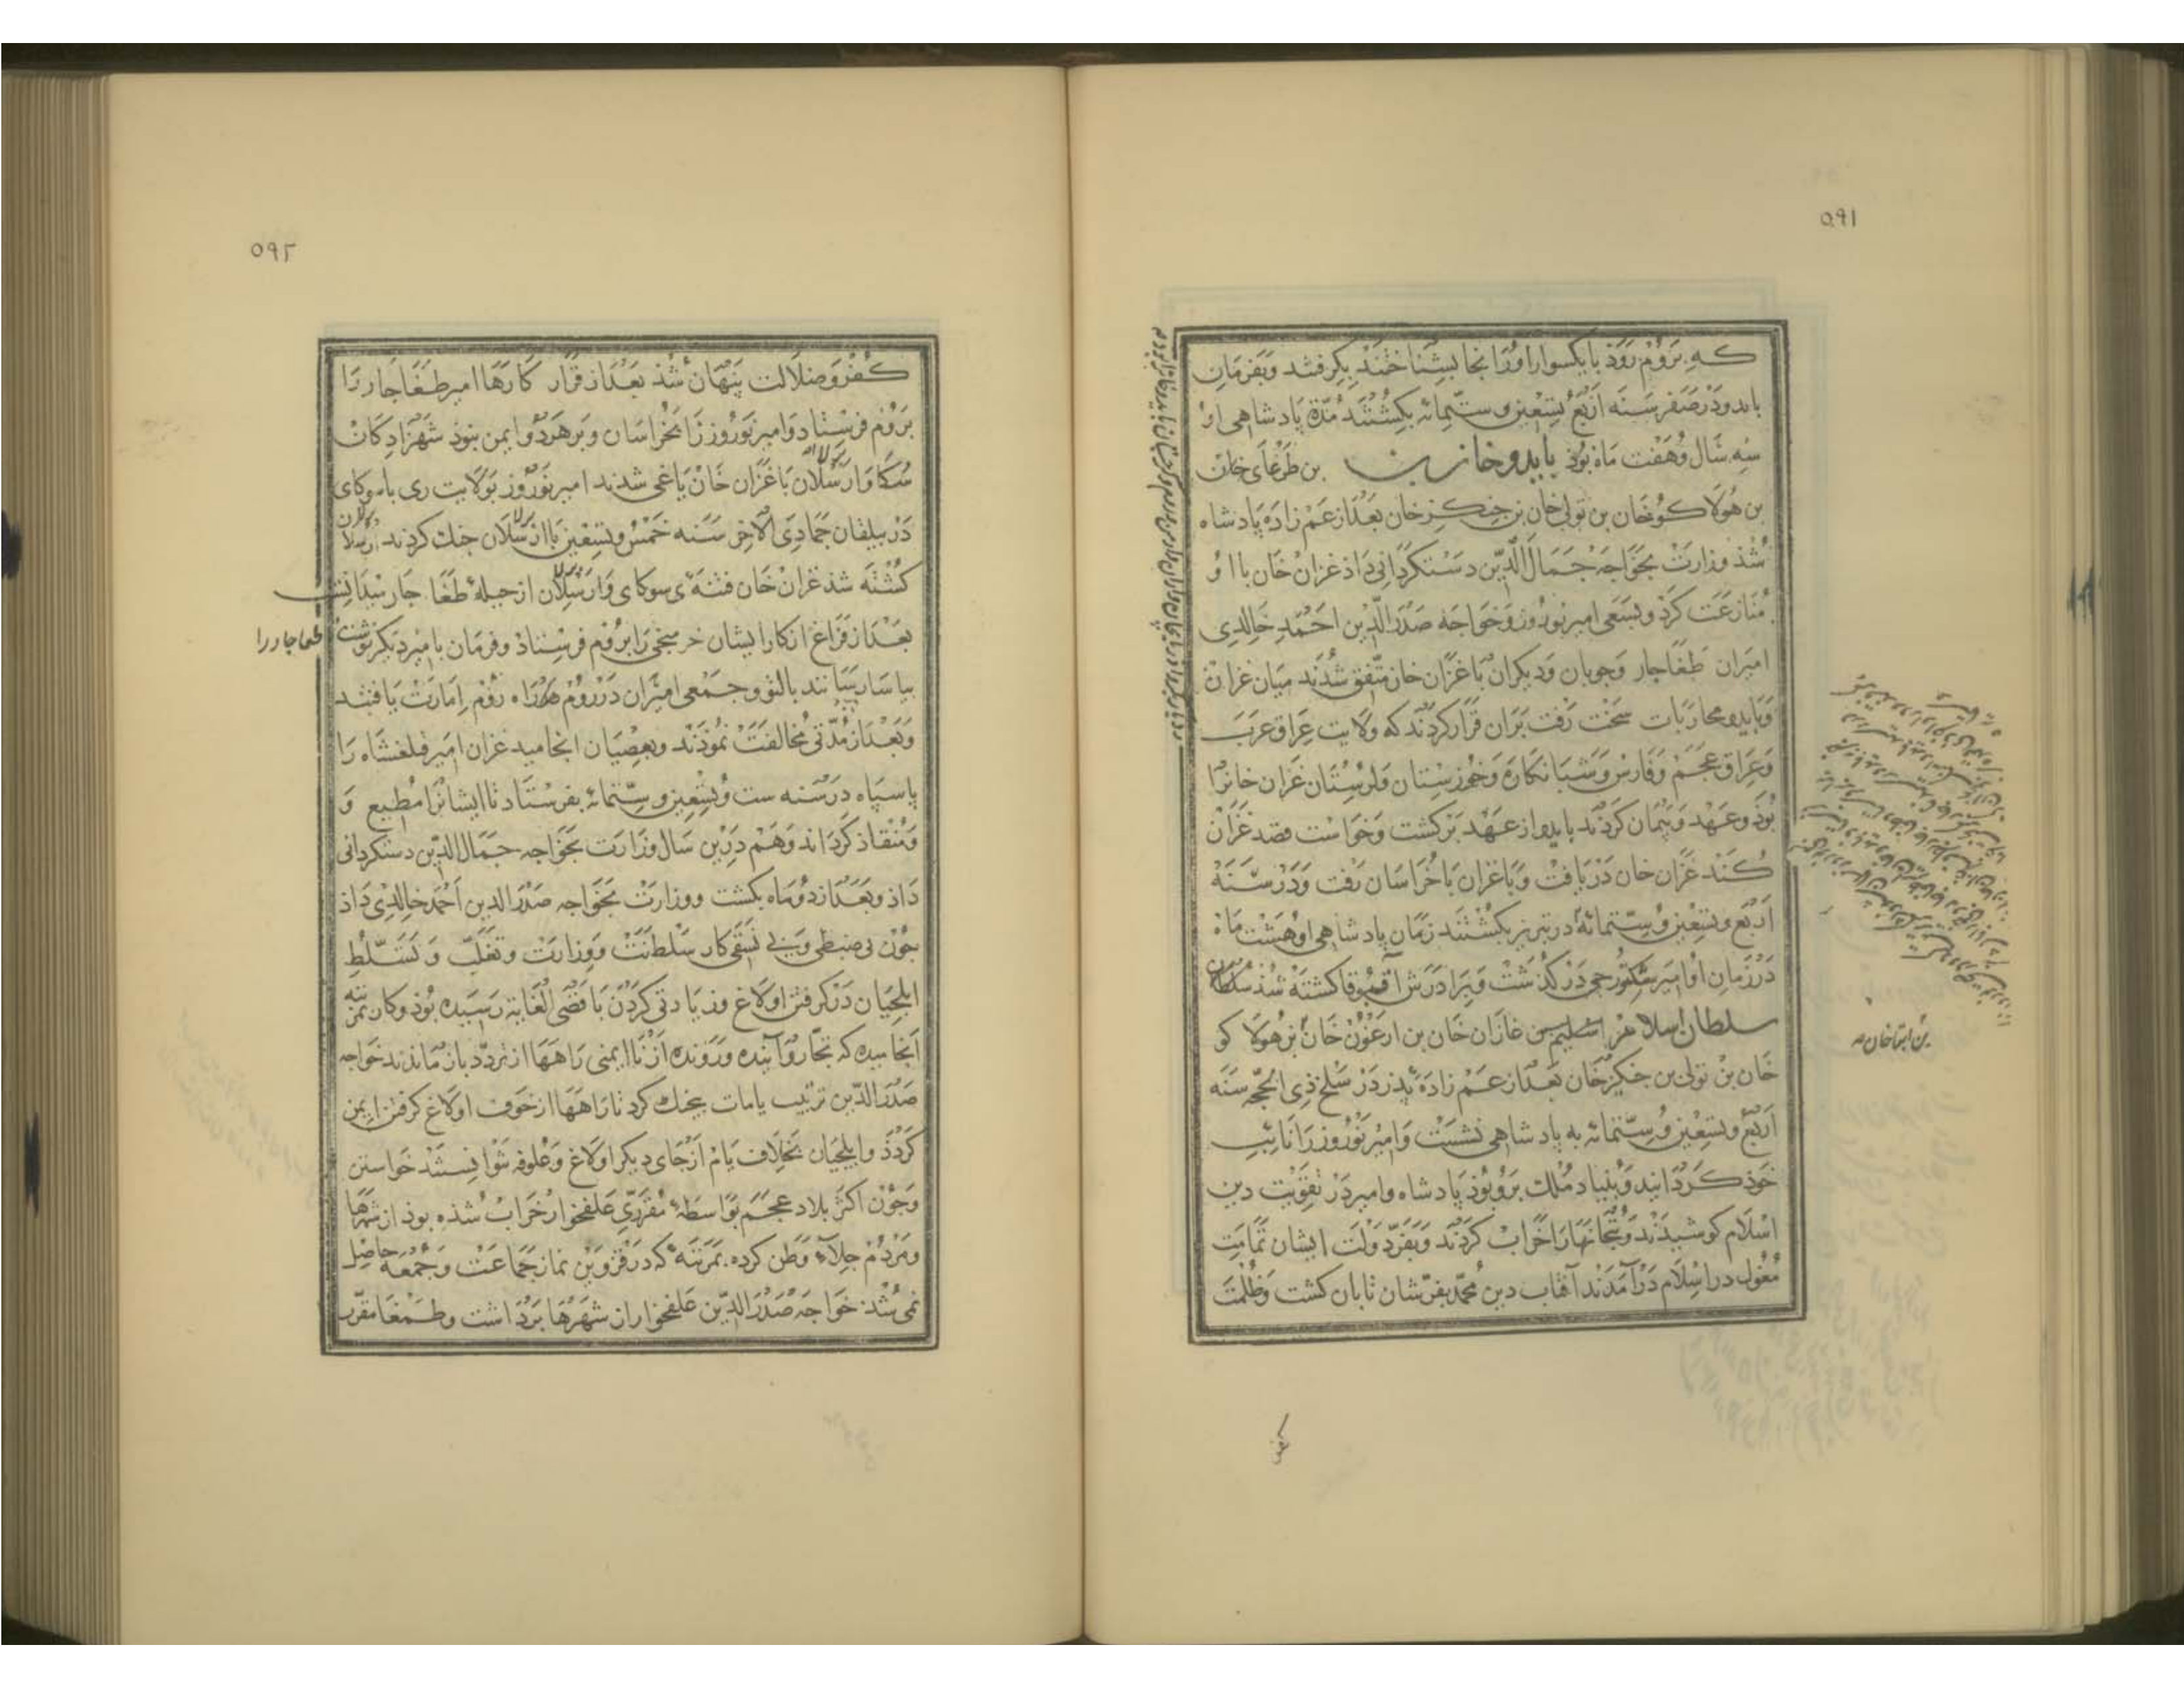 ٥٩١
که بروم روذ با یکسوار او را انجا بشناختند بکرفتند وبفرمان
بایدو در صفر سنه اربع وتسعین وستمائه بکشتند مدة پادشاهی او
سه سال وهفت ماه بوذ بایدو خان بن طرغای خان
بن هولاکو خان بن تولی خان بن جنکز خان بعد از عم زاده پادشاه
شذ وزارت بخواجه جمال الدین دستکردانی داذ غزان خان با او
منازعت کرد وبسعی امیر نوروز وخواجه صدر الدین احمد خالدی
امیران طغاجار وجوبان ودیکران با غزان خان متفق شدند میان غزان
وبایدو محاربات سخت رفت بران قرار کردند که ولایت عراق عرب
وعراق عجم وفارس وشبانکاره وخوزستان ولرستان غزان خانرا
بوذ وعهد وپیمان کردند بایدو از عهد برکشت وخواست قصد غزان
کند غزان خان دریافت وبا غزان با خراسان رفت ودر سنه
اربع وتسعین وستمائه در تبریز بکشتند زمان پادشاهی او هشت ماه
در زمان او امیر شکتور جی درکذشت وبرادرش اقبوقا کشته شذ سلطان
سلطان اسلام غازان خان بن ارغون خان بن هولاکو
خان بن تولی بن جنکیز خان بعد از عم زادهٔ پذر در سلخ ذی الحجه سنه
اربع وتسعین وستمائه به پادشاهی نشست وامیر نوروز را نائب
خوذ کردانید وبنیاد ملک برو بوذ پادشاه وامیر در تقویت دین
اسلام کوشیذند وبتخانها را خراب کردند وبفر دولت ایشان تمامت
مغول در اسلام درآمدند آفتاب دین محمد بفرشان تابان کشت وظلمت
بن ابقا خان
کفر
٥٩٢
کفر وضلالت پنهان شذ بعد از قرار کارها امیر طغاجار را
بروم فرستاد وامیر نوروز را بخراسان وبر هردو ایمن بنوذ شهزادکان
سکا وارسلان با غزان خان یاغی شدند امیر نوروز بولایت ری با سوکای
در بیلقان جمادی الاخر سنه خمس وتسعین با ارسلان جنک کردند ارسلان
کشته شذ غزان خان فتنهٔ سوکای وارسلان از حیلهٔ طغاجار میدانست
بعد از فراغ از کار ایشان خرمنجی را بروم فرستاذ وفرمان بامیر دیکر نوشت
طغاجار را
بیاسا رسانند بالتو وجمعی امیران در روم همراه روم امارت یافتند
وبعد از مدتی مخالفت نموذند وبعصیان انجامید غزان امیر قلغشاه را
با سپاه در سنه ست وتسعین وستمائه بفرستاد تا ایشانرا مطیع و
ومنقاد کرداند وهم درین سال وزارت بخواجه جمال الدین دستکردانی
داذ وبعد از دو ماه بکشت ووزارت بخواجه صدر الدین احمد خالدی داذ
جون بی ضبطی وبی نسقی کار سلطنت ووزارت وتغلب وتسلط
ایلجیان در کرفتن اولاغ وزیادتی کردن باقصی الغایة رسیده بوذ وکار بمرتبه
انجامیده که تجار وآینده ورونده از ناایمنی راهها از تردد باز ماندند خواجه
صدر الدین ترتیب یامات بنجیک کرد تا راهها از خوف اولاغ کرفتن ایمن
کردذ وایلجیان بخلاف یام از جای دیکر اولاغ وعلوفه نتوانستند خواستن
وجون اکثر بلاد عجم بواسطهٔ مقرری علفخوار خراب شذه بوذ از شهرها
ومردم جلاء وطن کرده بمرتبهٔ که در قزوین نماز جماعت وجمعه حاصل
نمی شذ خواجه صدر الدین علفخوار از شهرها برداشت وطمغا مقرر